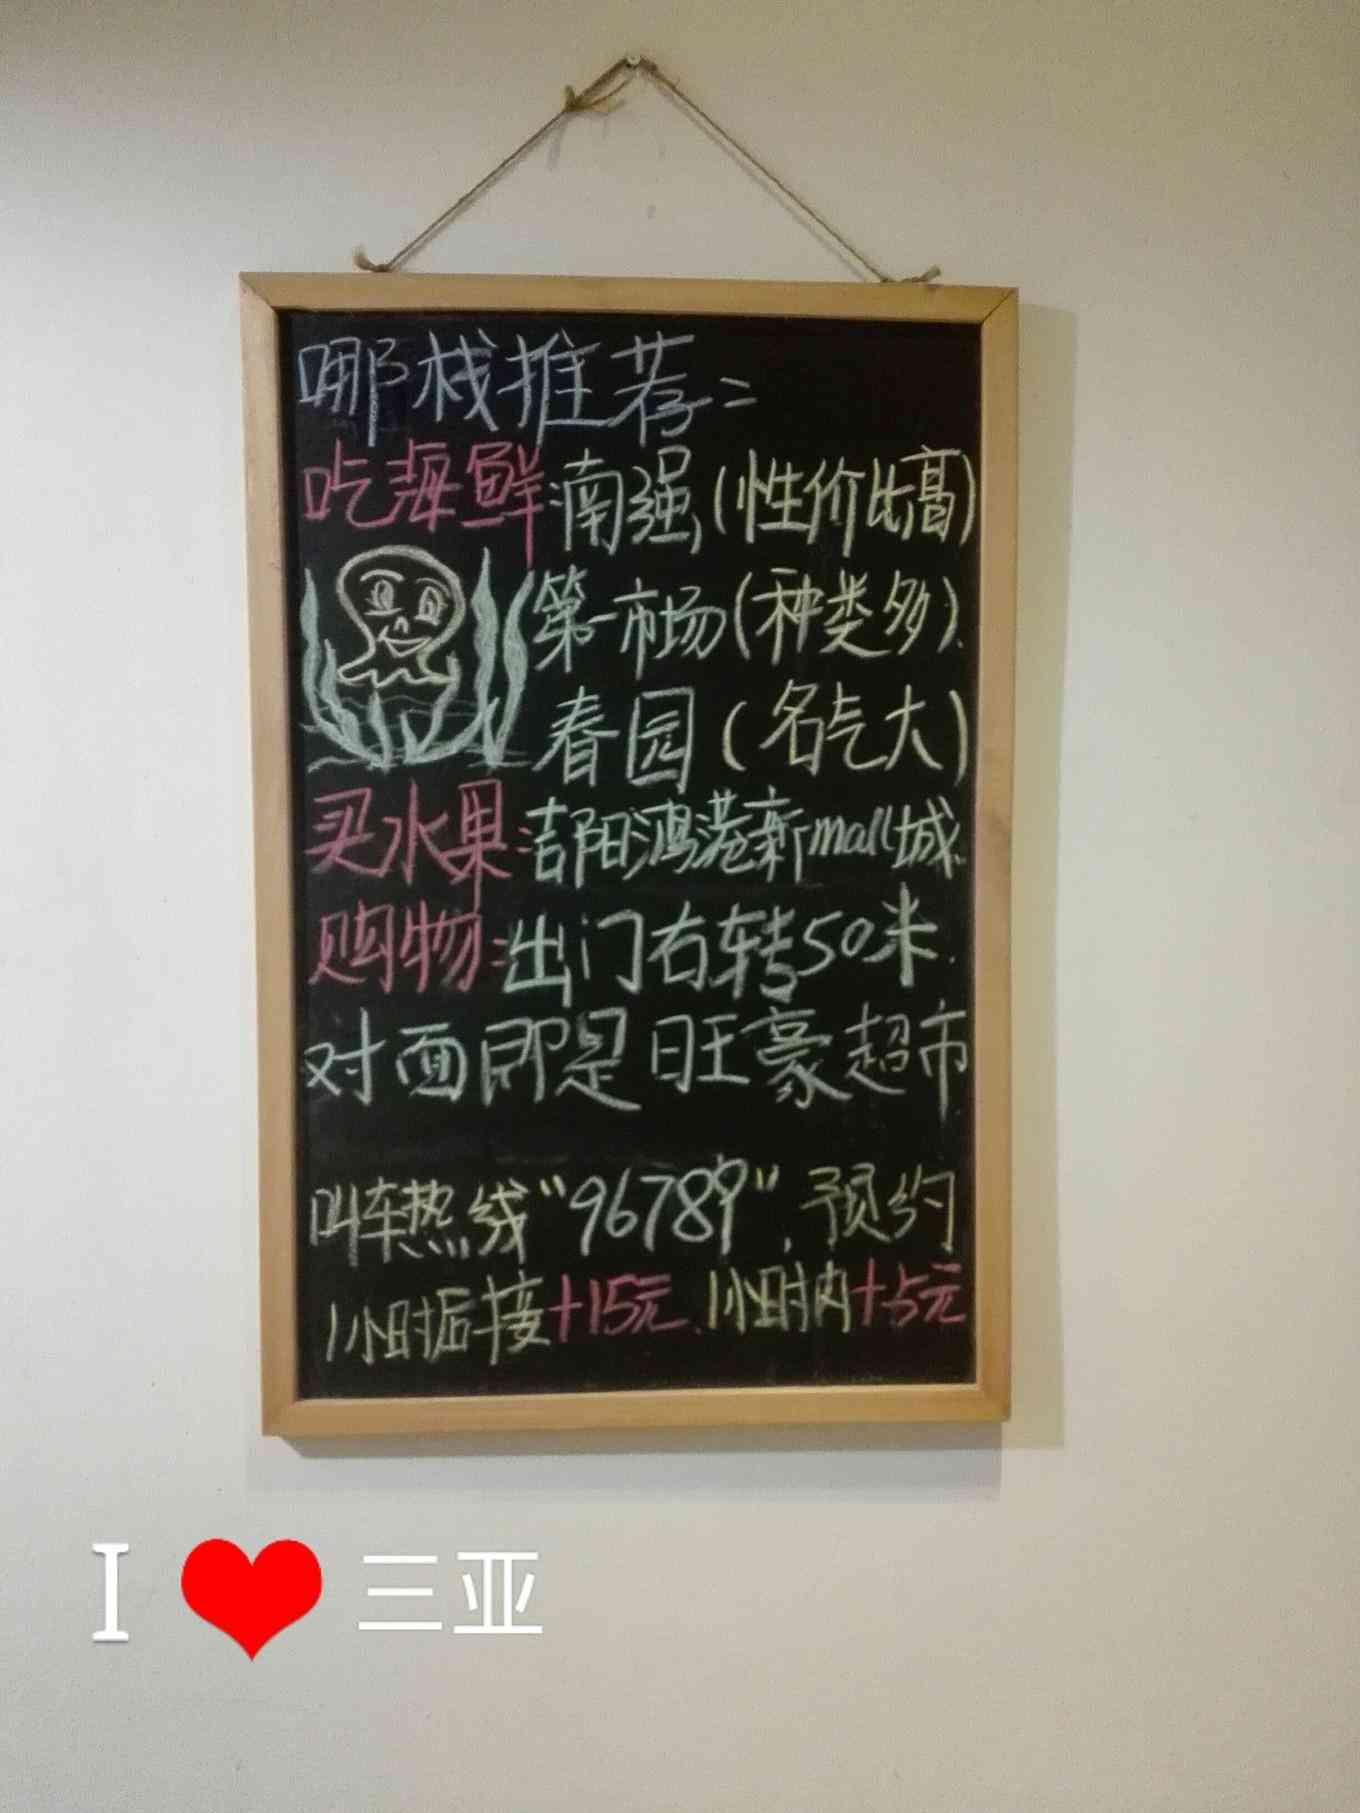 哪栈推荐:
吃海鲜:南强(性价比高)
第一市场(种类多).
春园(名气大)
买水果:吉阳鸿港新mall城.
购物:出门右转50米.
对面即是旺豪超市.
叫车热线"96789".预约
1小时后接+15元.1小时内+5元
I ❤ 三亚